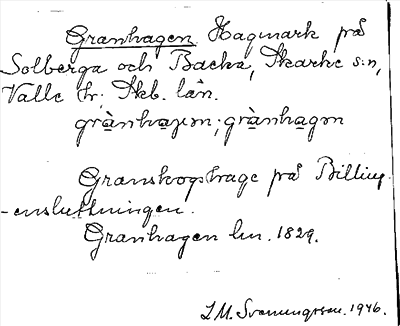 Granhagen. Hagmark på
Solberga och Backa, Skarke s:n,
Valle hr; Skb. län.
grànhaɡən; grànhaɡən
Granskogshage på Billing-
-ensluttningen.
Granhagen lm. 1829.
I.M. Svenungsson. 1946.